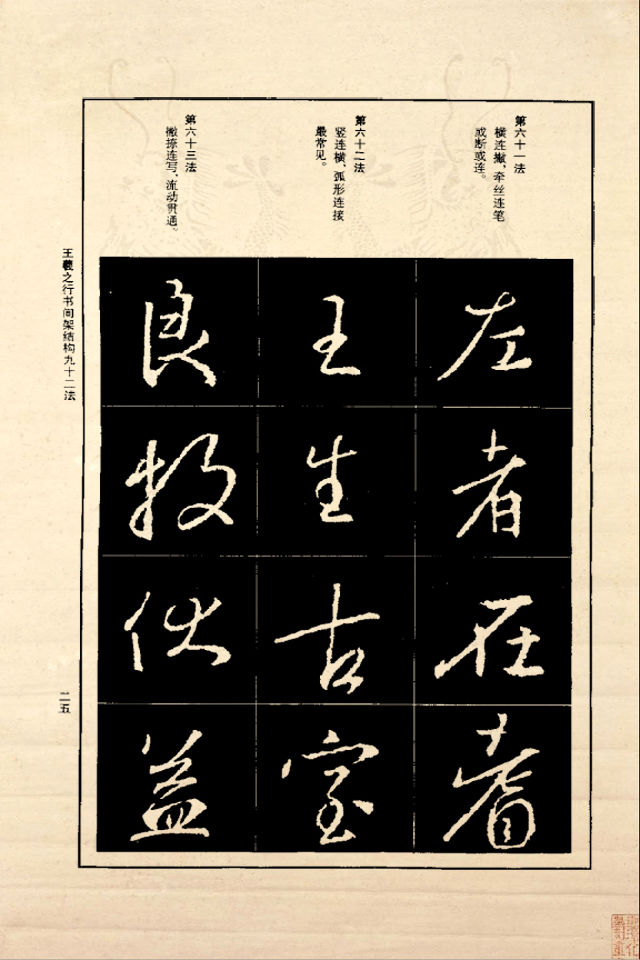 第六十一法
横连撇、牵丝连笔
或断或连。
左
者
在
耆
第六十二法
竖连横、弧形连接
最常见。
王
生
古
室
第六十三法
撇捺连写、流动贯通。
良
牧
伏
益
王羲之行书间架结构九十二法
二五